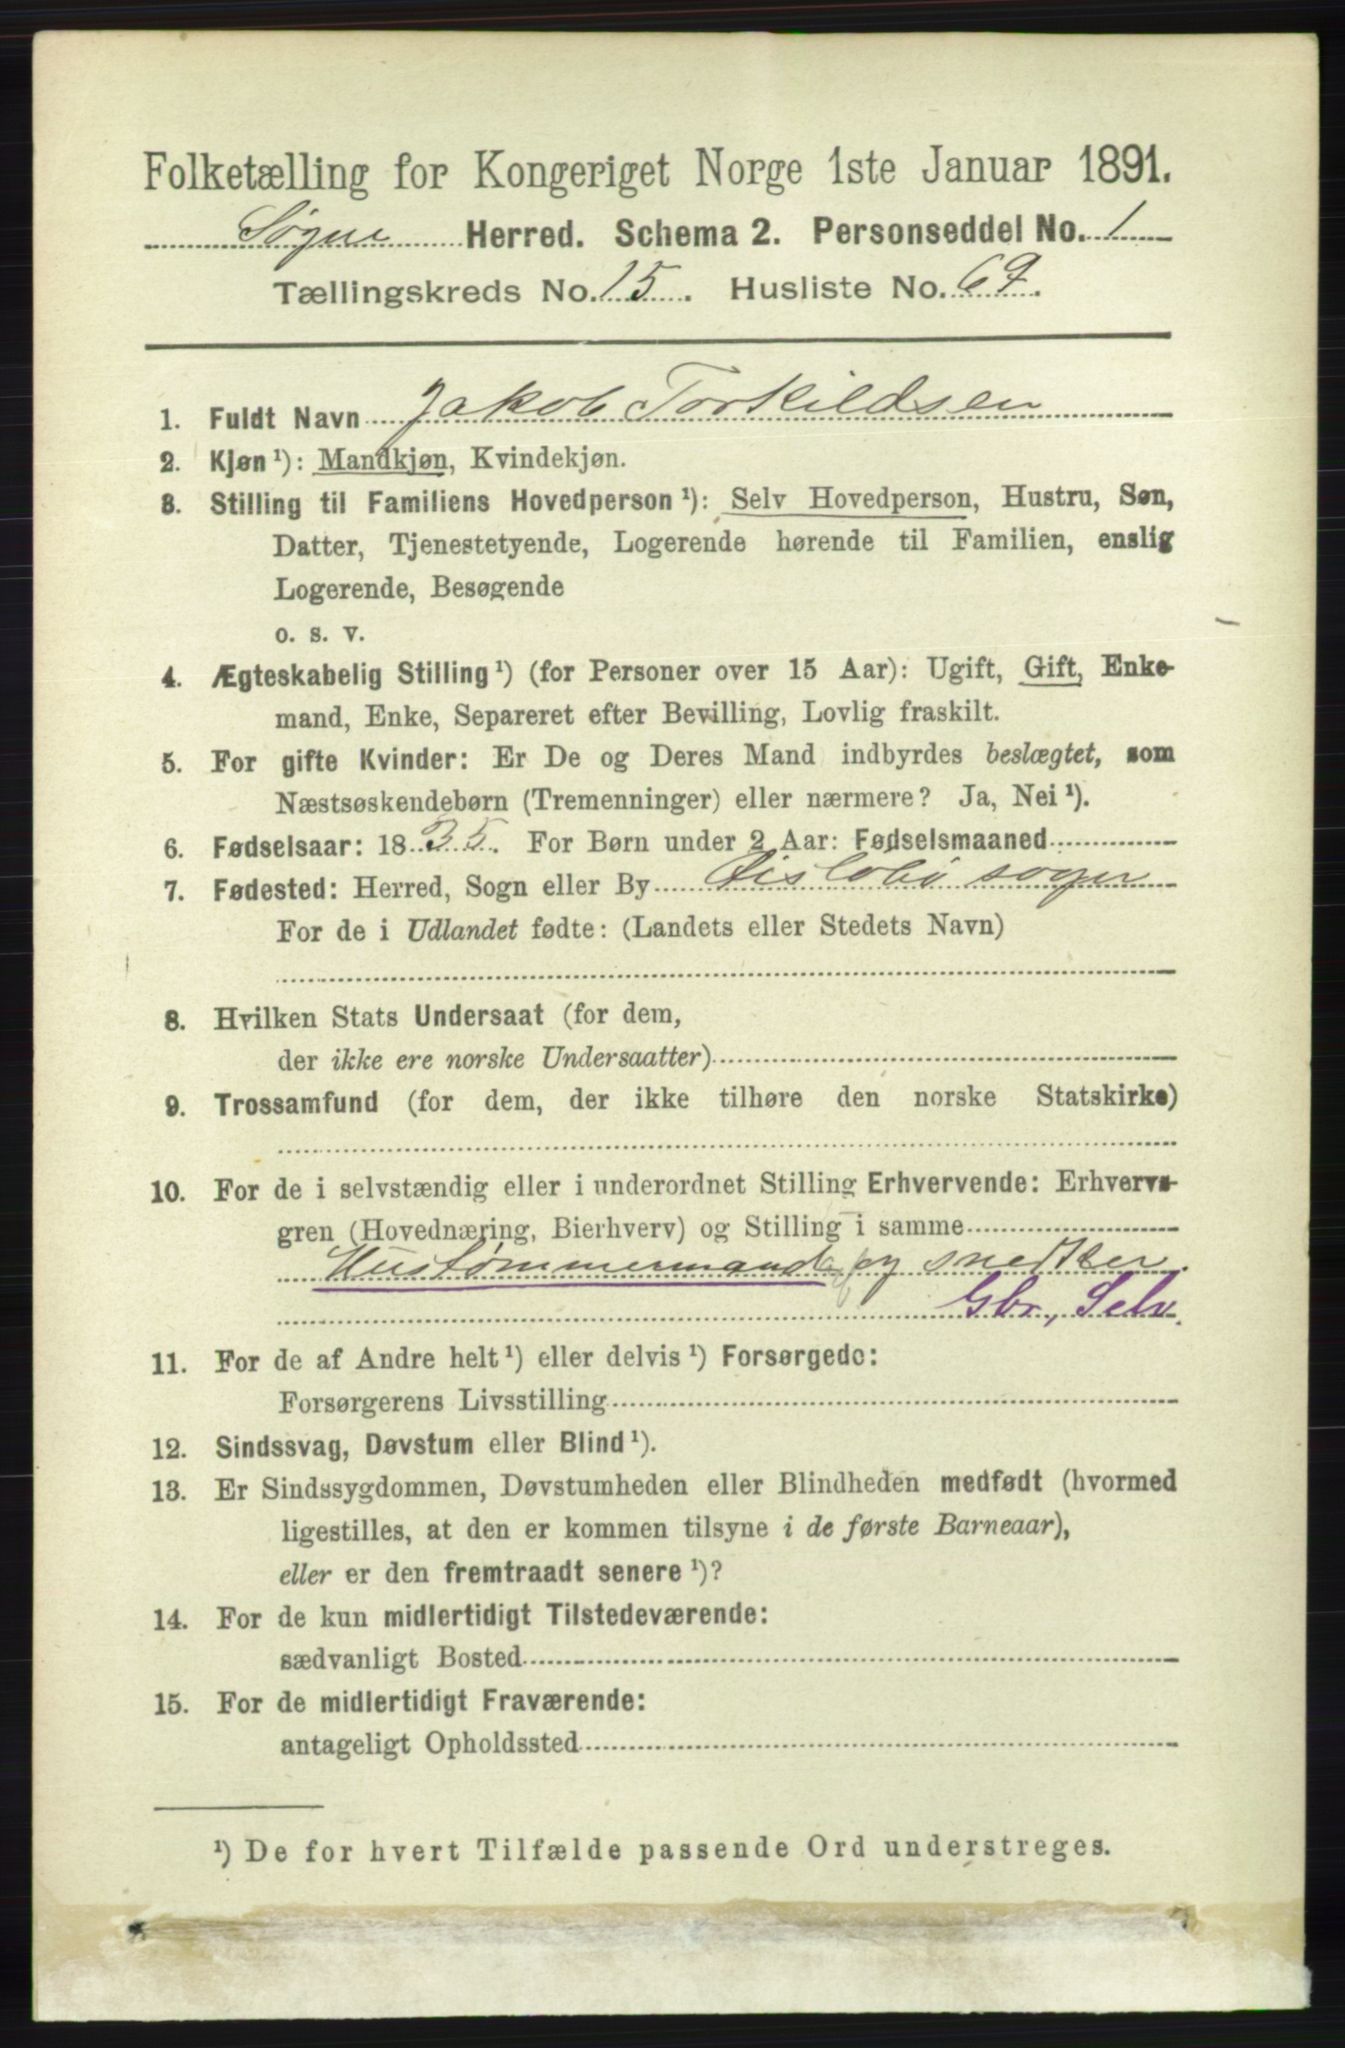 Folketælling for Kongeriget Norge 1ste Januar 1891.
Søgne Herred. Schema 2. Personseddel No. 1
Tællingskreds No. 15. Husliste No. 67.
1. Fuldt Navn Jakob Torkildsen
2. Kjøn¹): Mandkjøn, Kvindekjøn.
3. Stilling til Familiens Hovedperson¹): Selv Hovedperson, Hustru, Søn,
Datter, Tjenestetyende, Logerende hørende til Familien, enslig
Logerende, Besøgende
o. s. v.
4. Ægteskabelig Stilling¹) (for Personer over 15 Aar): Ugift, Gift, Enke-
mand, Enke, Separeret efter Bevilling, Lovlig fraskilt.
5. For gifte Kvinder: Er De og Deres Mand indbyrdes beslægtet, som
Næstsøskendebørn (Tremenninger) eller nærmere? Ja, Nei¹).
6. Fødselsaar: 1835. For Børn under 2 Aar: Fødselsmaaned
7. Fødested: Herred, Sogn eller By
For de i Udlandet fødte: (Landets eller Stedets Navn)
8. Hvilken Stats Undersaat (for dem,
der ikke ere norske Undersaatter)
9. Trossamfund (for dem, der ikke tilhøre den norske Statskirke)
10. For de i selvstændig eller i underordnet Stilling Erhvervende: Erhvervs-
gren (Hovednæring, Bierhverv) og Stilling i samme
Hustømmermand og snedker.
Gbr, Selv.
11. For de af Andre helt¹) eller delvis¹) Forsørgede:
Forsørgerens Livsstilling
12. Sindssvag, Døvstum eller Blind¹).
13. Er Sindssygdommen, Døvstumheden eller Blindheden medfødt (hvormed
ligestilles, at den er kommen tilsyne i de første Barneaar),
eller er den fremtraadt senere¹)?
14. For de kun midlertidigt Tilstedeværende:
sædvanligt Bosted
15. For de midlertidigt Fraværende:
antageligt Opholdssted
¹) De for hvert Tilfælde passende Ord understreges.